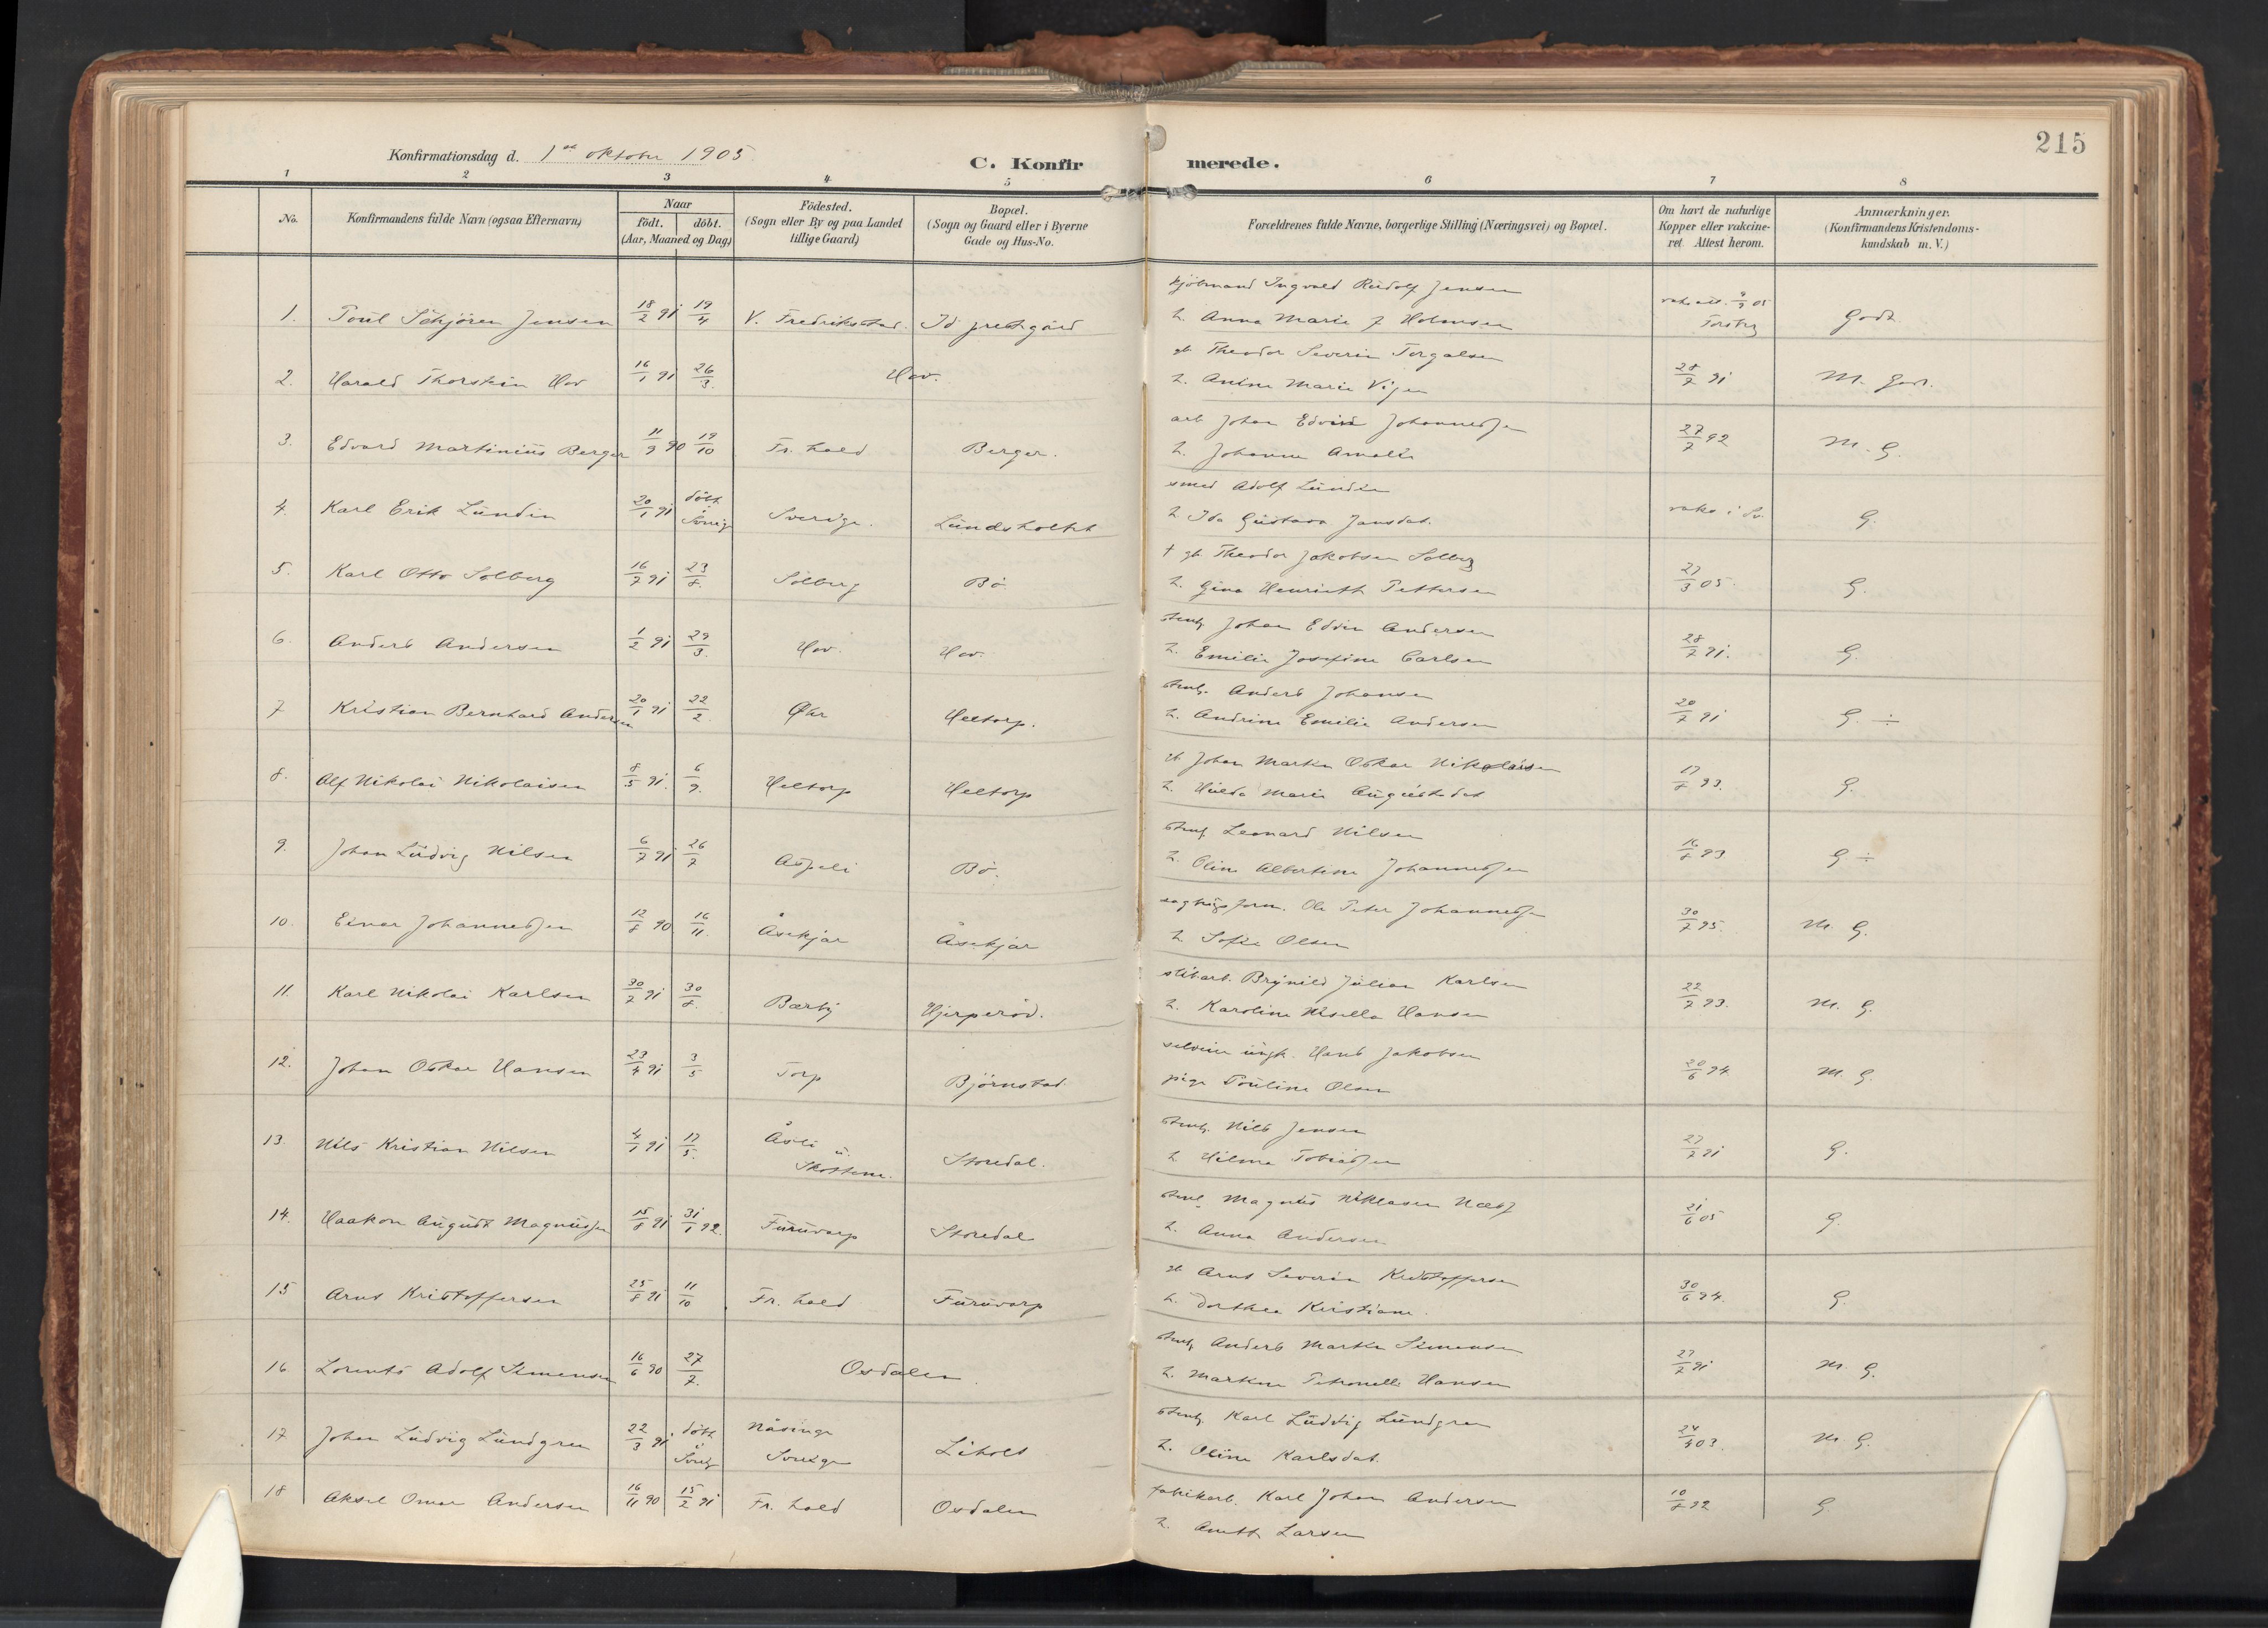 215
Konfirmationsdag d. 1ste oktober 1905
C. Konfirmerede.
1 2 3 4 5 6 7 8
No.
Konfirmandens fulde Navn (ogsaa Efternavn)
Naar
födt. döbt.
(Aar, Maaned og Dag)
Födested.
(Sogn eller By og paa Landet
tillige Gaard)
Bopæl.
(Sogn og Gaard eller i Byerne
Gade og Hus-No.
Forældrenes fulde Navne, borgerlige Stilling (Næringsvei) og Bopæl.
Om havt de naturlige
Kopper eller vakcine-
ret Attest herom.
Anmærkninger.
(Konfirmandens Kristendoms-
kundskab m. V.)
kjöbmand Ingvald Rudolf Jensen
1. Poul Schjören Jensen 18/2 91 19/4 V. Fredrikstad. Id prestgård
h. Anna Marie f Holmsen 4/9 05 Torsby godt
gb. Theodor Severin Torgalsen
2. Harald Thorstein Hov 16/1 91 26/3. Hov.
h. Anine Marie Vigen 28/7 91 M. Godt.
arb Johan Edvin Johannessen
3. Edvard Martinius Berger 11/9 90 19/10 Fr. hald Berger.
h. Johanne Amalie 27/7 92 M. G.
smed Adolf Lundin
4. Karl Erik Lundin 20/1 91 döbt i Sverig Sverige. Lundsholtet
h Ida Gustava Jansdat. vaks i Sv. G.
† gb. Theodor Jakobsen Solberg
5. Karl Otto Solberg 16/7 91 23/8. Solberg Bö
h. Gina Henriette Pettersen 27/3 05. G.
stenh. Johan Edvin Andersen
6. Anders Andersen 1/2 91 29/3. Hov. Hov.
h. Emilie Josefine Carlsen 28/7 91. G.
stenh. Anders Johansen
7 Kristian Bernhard Andersen 20/1 91 22/2. Öhr Heltorp.
h. Andrine Emilie Andersen 20/7 91 G. ÷
gb Johan Martin Oskar Nikolaisen
8. Alf Nikolai Nikolaisen 8/5 91. 6/9. Heltorp Heltorp
h. Hulda Marie Augustsdat 17/8 93. G.
stenh Leonard Nilsen
9. Johan Ludvig Nilsen 6/7 91 26/7 Aspeli Bö.
h. Oline Albertine Johannessen 16/8 93 G ÷
sagbrugsform. Ole Peter Johannessen
10. Einar Johannessen 12/8 90 16/11. Åsekjær Åsekjær
h. Sofie Olsen 30/7 95. M. G.
slibarb. Brynild Julian Karlsen
11. Karl Nikolai Karlsen 30/7 91 30/8. Bærby Hjerperöd.
h. Karoline Nisella Hansen 22/7 93. M. G.
selveier ungk. Hans Jakobsen
12. Johan Oskar Hansen 23/4 91 3/5 Torp Björnstad.
pige Pouline Olsen 20/6 94 M. G.
stenh. Nils Jensen
13. Nils Kristian Nilsen 4/1 91 17/5. Åsli u. Skottene. Storedal.
h Hilma Tobiassen 27/7 91 G.
stenh Magnus Niklasen Næss
14. Haakon August Magnussen 15/8 91 31/1 92. Furuvarp Storedal
h. Anna Andersen 21/6 05 G.
gb Arnt Severin Kristoffersen
15 Arnt Kristoffersen 25/8 91 11/10 Fr. hald Furuvarp
h. Dorthea Kristiane. 30/6 94. G.
stenh Anders Martin Simensen
16 Lorents Adolf Simensen 16/6 90 27/7. Osdalen.
h. Martine Petronelle Hansen 27/7 91 M. G.
stenh. Karl Ludvig Lundgren
17 Johan Ludvig Lundgren 22/3 91. döbt i Sverig Näsinge Sverige Liholt
h. Oline Karlsdat. 24/4 03. M. G.
fabrikarb. Karl Johan Andersen
18 Aksel Omar Andersen 16/11 90 15/2 91 Fr. hald Osdalen
h. Anette Larsen 10/8 92 G.